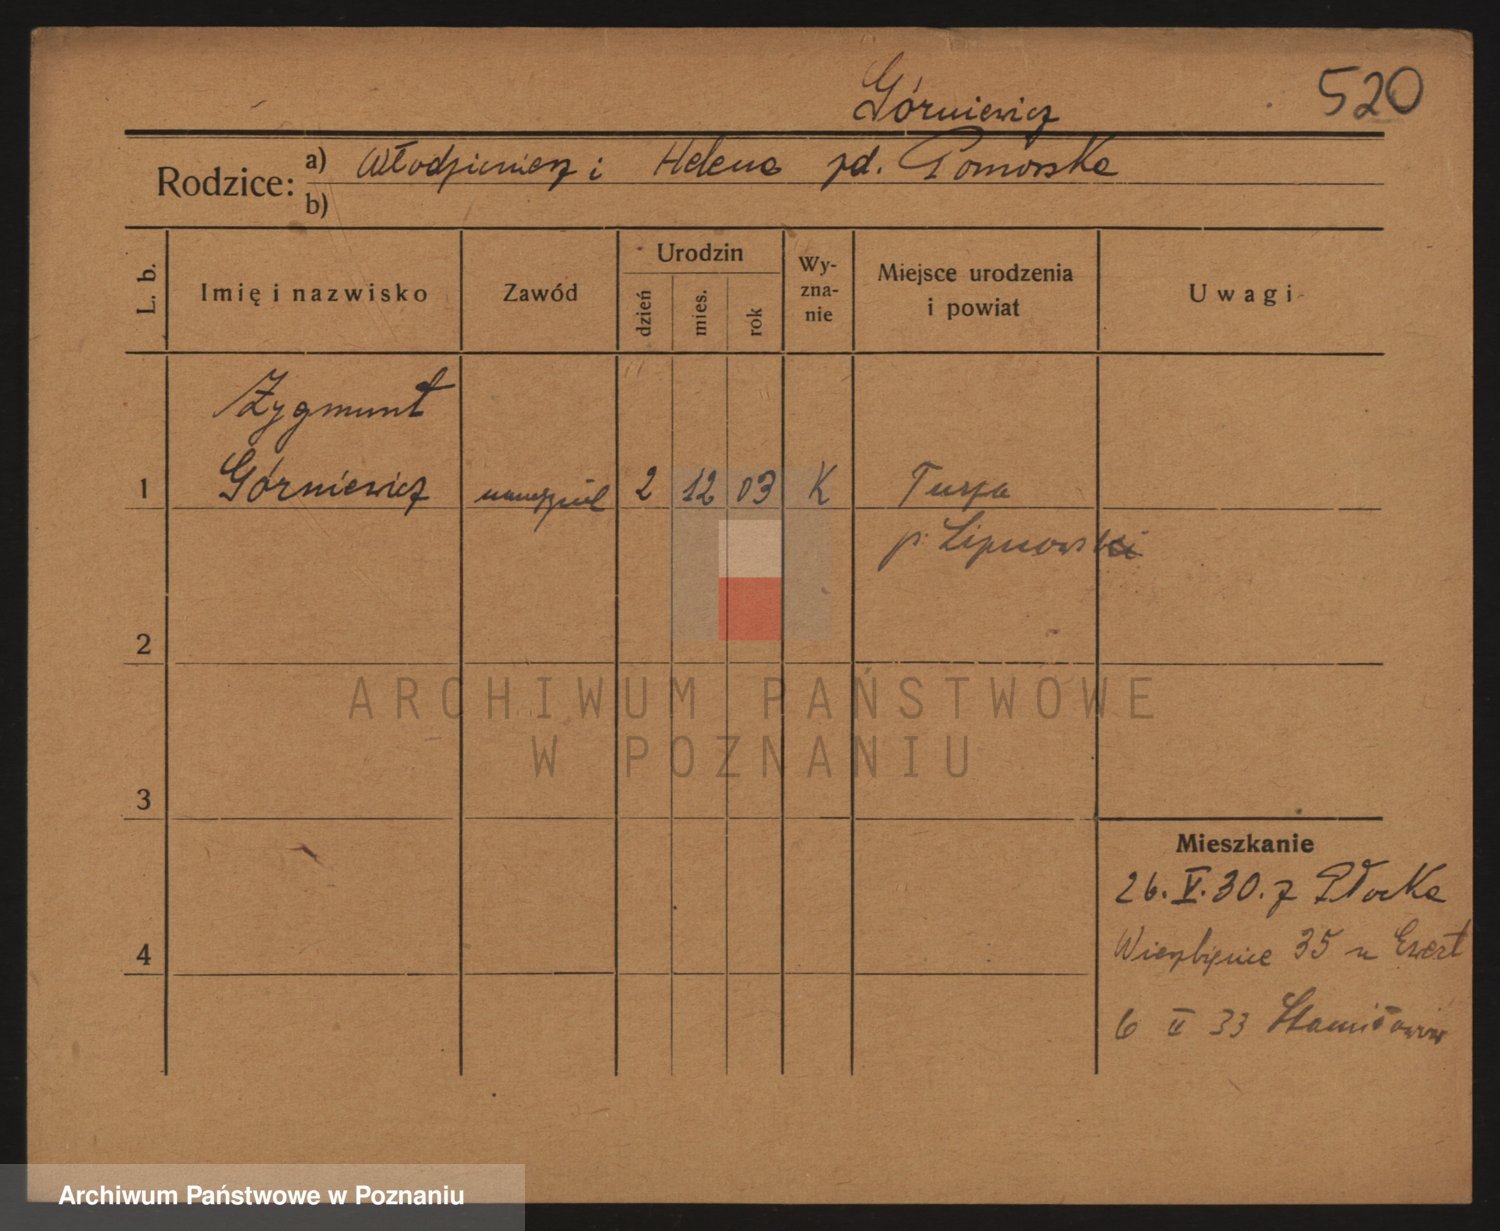 Górniewicz 520
Rodzice: a) Włodzimierz i Helena zd. Pomorska
b)
L. b. Imię i nazwisko Zawód Urodzin dzień mies. rok Wy-zna-nie Miejsce urodzenia i powiat Uwagi
Zygmunt
1 Górniewicz nauczyciel 2 12 03 K Turza
p. Lipnowski
2
ARCHIWUM PAŃSTWOWE
W POZNANIU
3
Mieszkanie
26. V. 30. z Płocka
4 Wierzbięcice 35 u Ewert
6 II 33
Archiwum Państwowe w Poznaniu